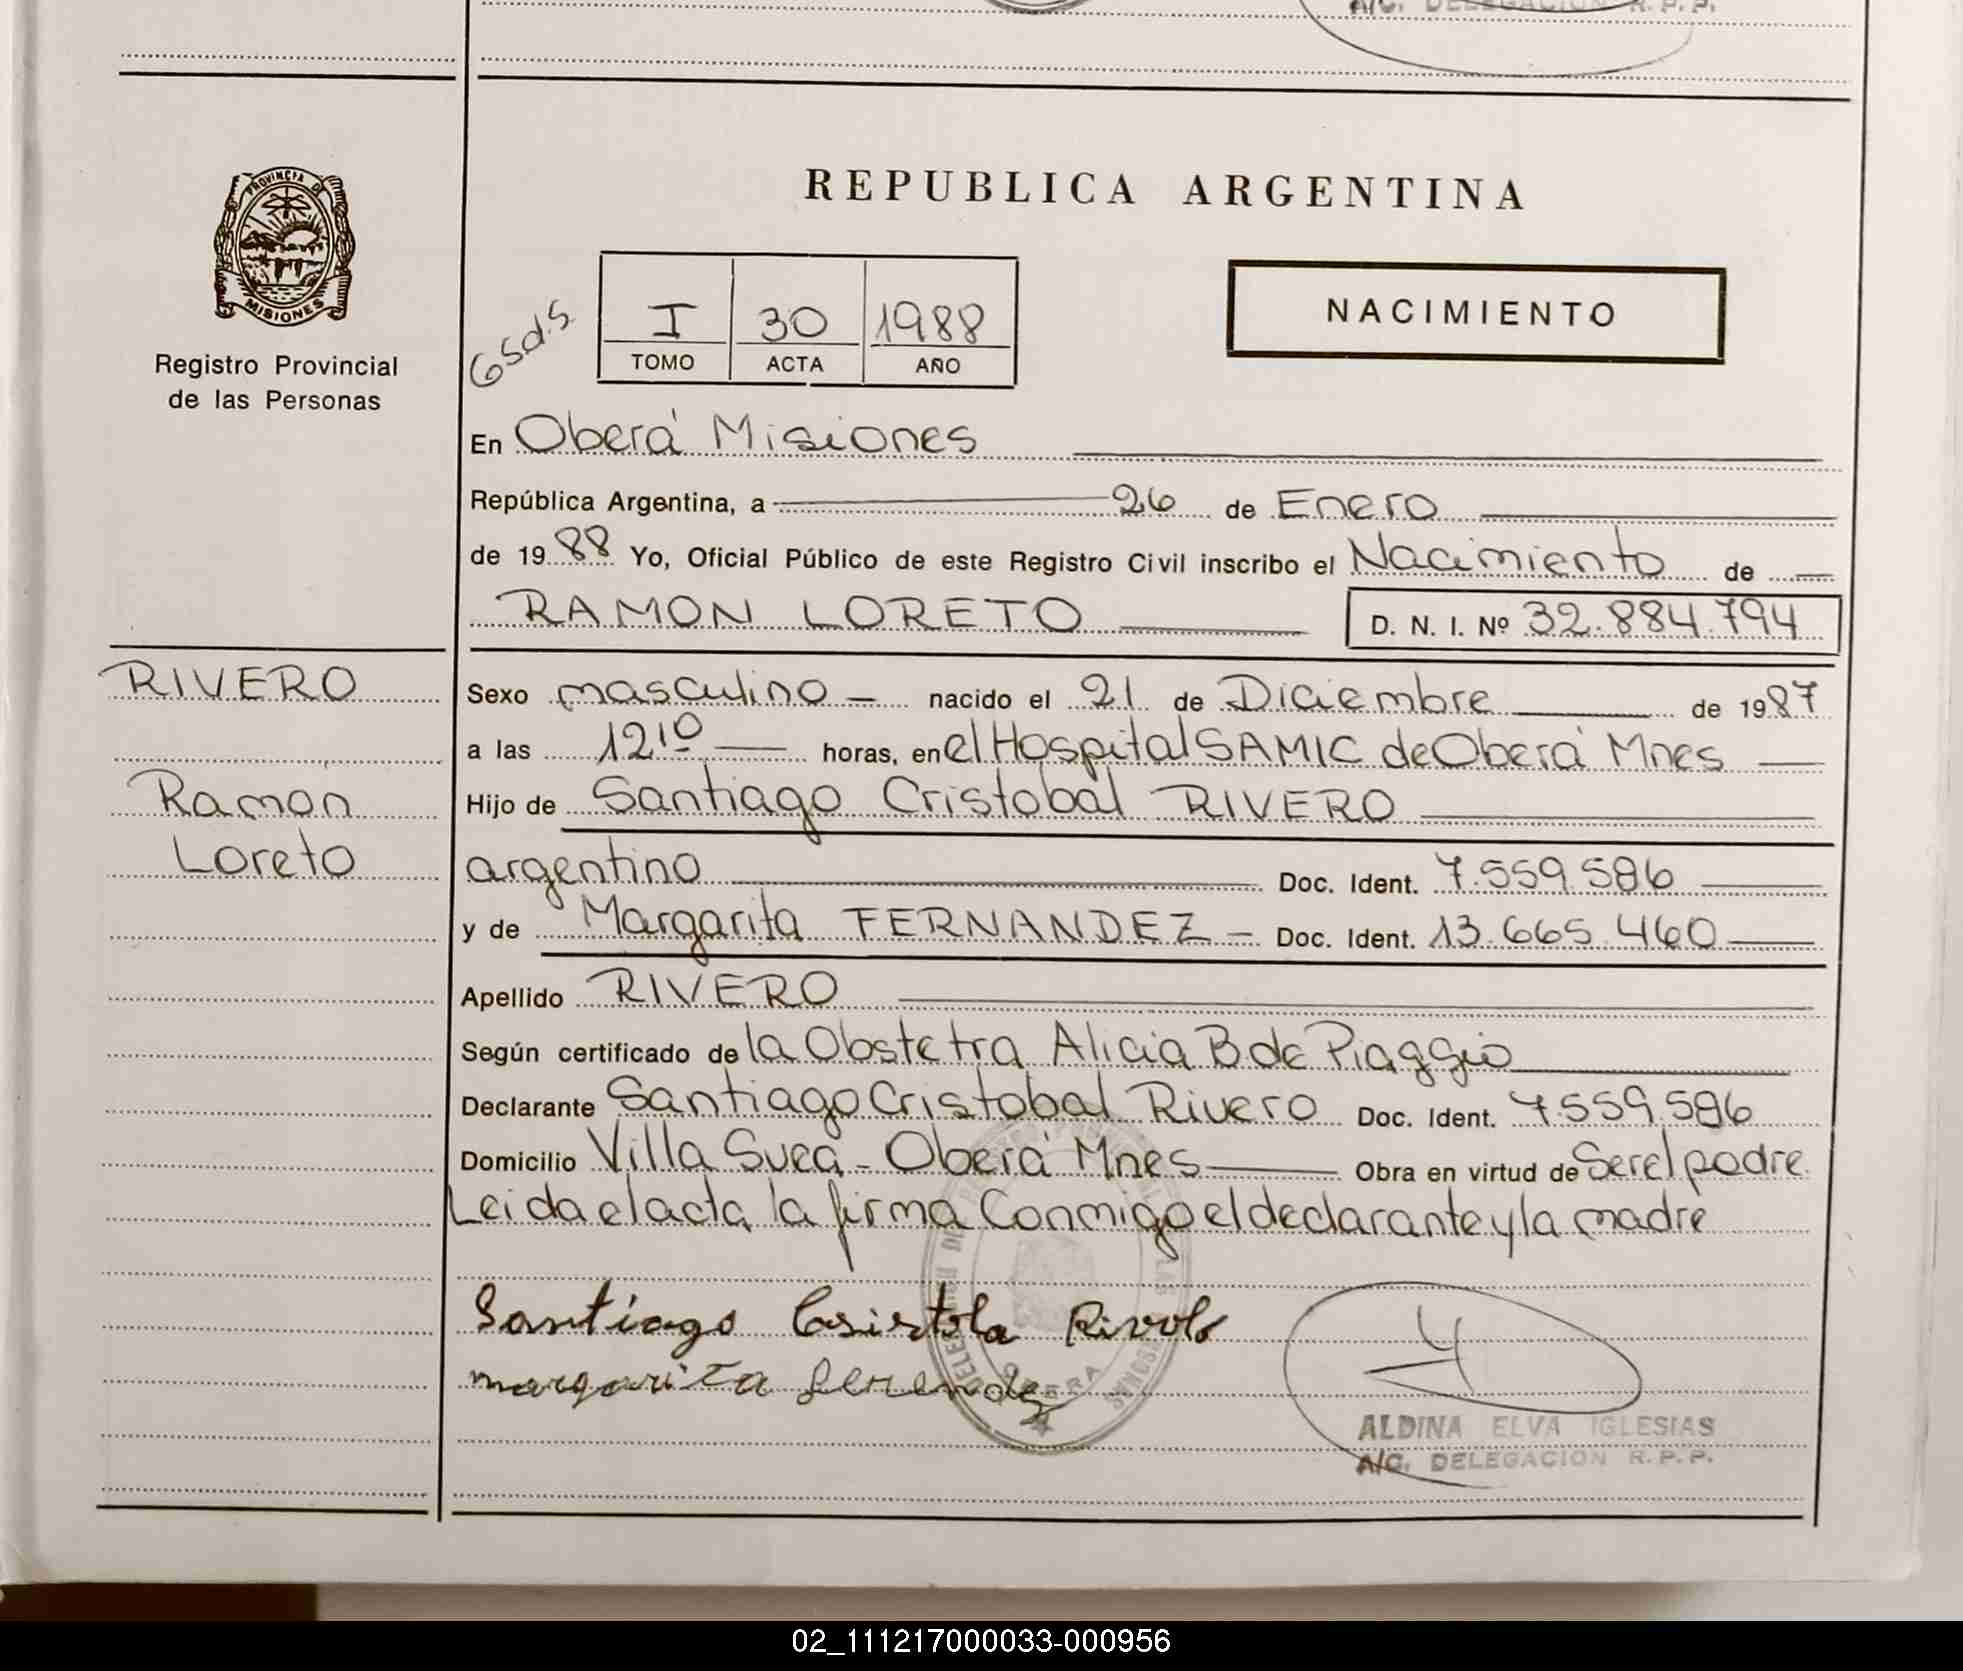 A/C. DELEGACION R.P.P.
PROVINCIA DE
MISIONES
Registro Provincial
de las Personas
REPUBLICA ARGENTINA
I 30 1988
TOMO ACTA AÑO
NACIMIENTO
En Oberá Misiones
República Argentina, a 26 de Enero
de 1988 Yo, Oficial Público de este Registro Civil inscribo el Nacimiento de
RAMON LORETO D. N. I. Nº 32.884.794
RIVERO
Ramon
Loreto
Sexo masculino nacido el 21 de Diciembre de 1987
a las 12¹⁰ horas, en el Hospital SAMIC de Oberá Mnes
Hijo de Santiago Cristobal RIVERO
argentino Doc. Ident. 7.559.586
y de Margarita FERNANDEZ Doc. Ident. 13.665.460
Apellido RIVERO
Según certificado de la Obstetra Alicia B de Piaggio
Declarante Santiago Cristobal Rivero Doc. Ident. 7.559.586
Domicilio Villa Svea - Oberá Mnes Obra en virtud de Ser el padre
Leida el acta la firma Conmigo el declarante y la madre
Santiago
margarita
OBERA
ALDINA ELVA IGLESIAS
A/C. DELEGACION R.P.P.
02_111217000033-000956